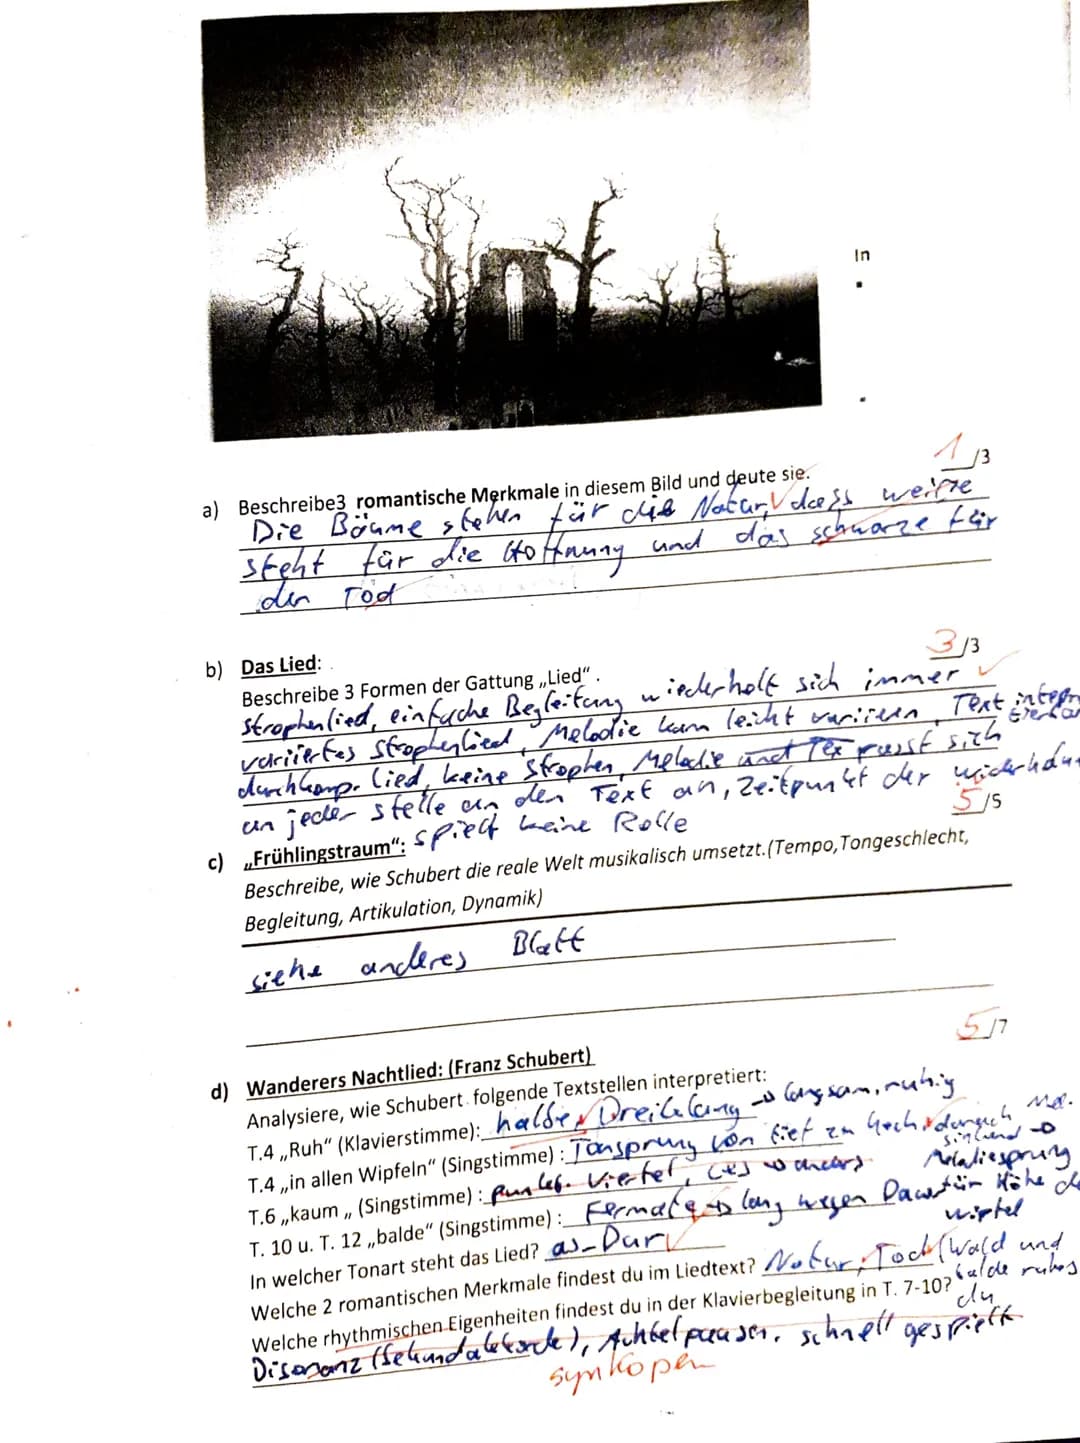 In
1/3
a) Beschreibe3 romantische Merkmale in diesem Bild und deute sie.
Die Bäume stehen für die Natur, dass weiße
steht für die Hoffnung und das schwarze für
den Tod
3/3
b) Das Lied:
Beschreibe 3 Formen der Gattung „Lied“.
Strophenlied, einfache Begleitung wiederholt sich immer
variiertes Strophenlied, Melodie kann leicht variieren, Text
durchkomp. Lied, keine Strophen, Melodie passt sich
an jeder stelle an den Text an, Zeitpunkt der
spielt keine Rolle
5/5
c) „Frühlingstraum“:
Beschreibe, wie Schubert die reale Welt musikalisch umsetzt.(Tempo,Tongeschlecht,
Begleitung, Artikulation, Dynamik)
siehe anderes Blatt
5/7
d) Wanderers Nachtlied: (Franz Schubert)
Analysiere, wie Schubert folgende Textstellen interpretiert:
T.4 „Ruh“ (Klavierstimme): halbe, Dreiklang → langsam, ruhig
T.4 „in allen Wipfeln“ (Singstimme) : Tonsprung von tief zu hoch, danach Mel. sinkend →
Melodiesprung
T.6 „kaum „ (Singstimme) : punkt. Viertel, für Höhe
wipfel
T. 10 u. T. 12 „balde“ (Singstimme) : Fermate → lang wegen Dauer
In welcher Tonart steht das Lied? as-Dur
Welche 2 romantischen Merkmale findest du im Liedtext? Natur, Tod (Wald und
balde ruhes
du
Welche rhythmischen Eigenheiten findest du in der Klavierbegleitung in T. 7-10?
Disonanz (Sekundakkorde), Achtelpausen, schnell gespielt
synkopen